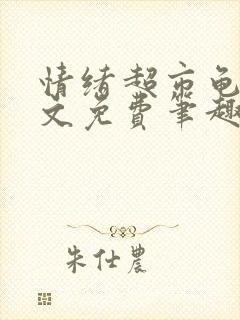 情绪超市龟
文免费笔趣
朱仕農